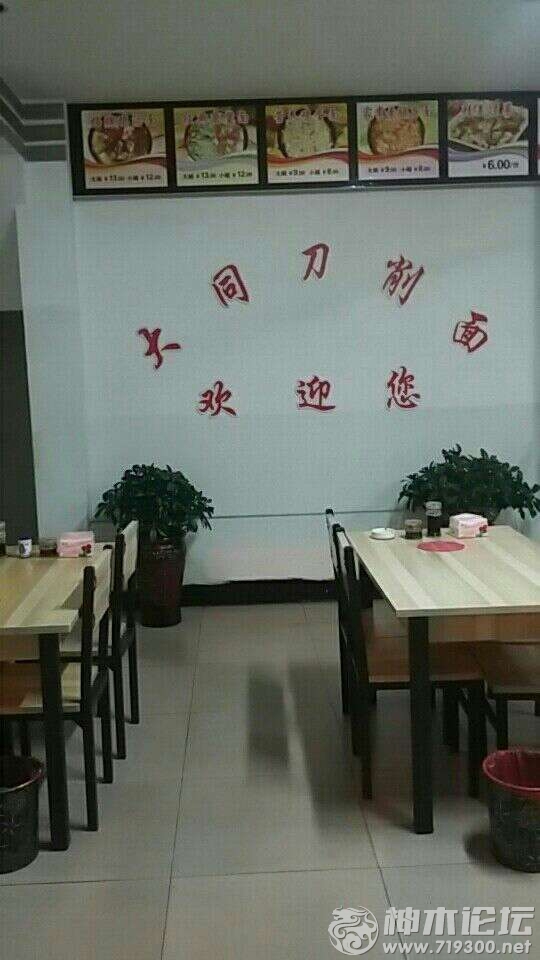 大碗 ¥13.00 小碗 ¥12.00
大碗 ¥13.00 小碗 ¥12.00
大碗 ¥9.00 小碗 ¥8.00
大碗 ¥9.00 小碗 ¥8.00
¥6.00/份
大同刀削面
欢迎您
神木论坛
www.719300.net